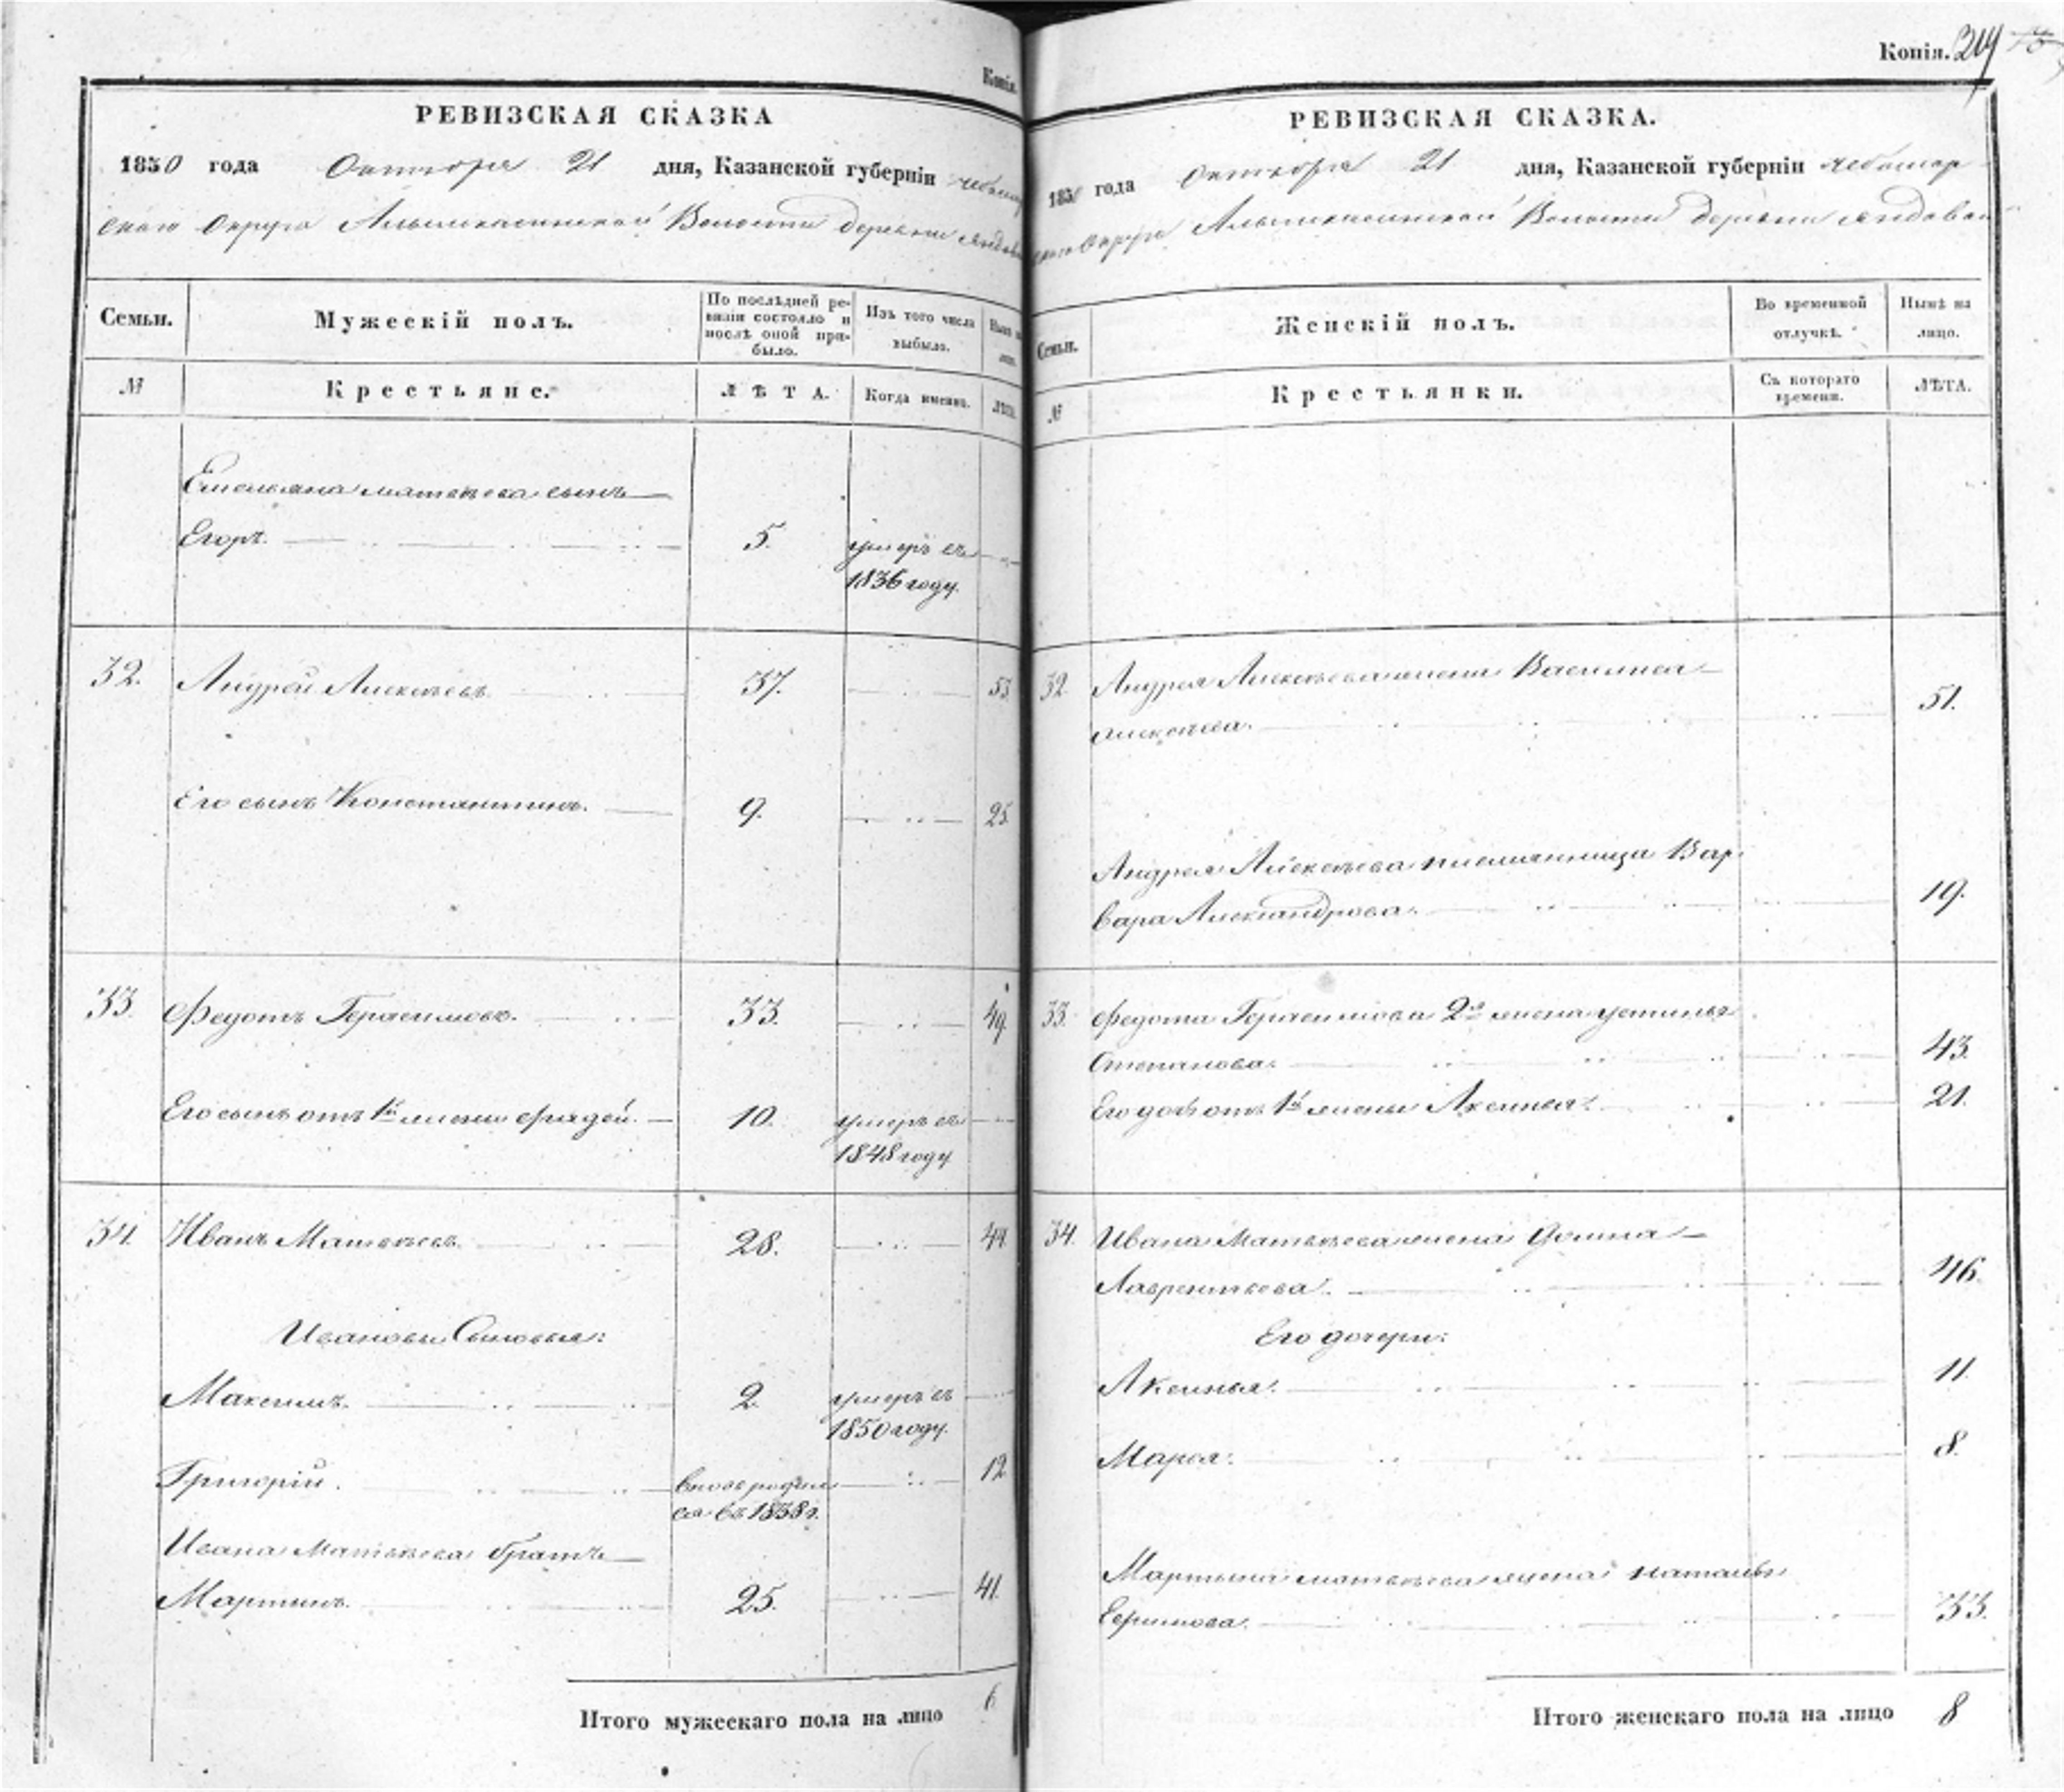 Копія.
РЕВИЗСКАЯ СКАЗКА
1850 года Октября 21 дня, Казанской губерніи Чебоксар
скаго Округа Алымкасинской Волости деревни
Семьи.
Мужескій полъ.
По послѣдней ре-
визіи состояло и
послѣ оной при-
было.
Изъ того числа
выбыло.
Нынѣ на
лицо.
№
Крестьяне.
ЛѢТА.
Когда именно.
ЛѢТА.
Емельяна Матвѣева сынъ
Егоръ. 5. умеръ въ
1836 году.
32. Андрей Алексѣевъ 37. 53
Его сынъ Константинъ. 9. 25
33. Федотъ Герасимовъ. 33. 49.
Его сынъ отъ 1й жены Фадей. 10. умеръ въ
1848 году
34. Иванъ Матвѣевъ 28. 44
Ивановы Сыновья:
Максимъ. 2. умеръ въ
1850 году.
Григорій. вновь родил
ся въ 1838 г. 12
Ивана Матвѣева братъ
Мартынъ. 25. 41.
Итого мужескаго пола на лицо 6
Копія. 214
РЕВИЗСКАЯ СКАЗКА.
1850 года Октября 21 дня, Казанской губерніи Чебоксар
скаго Округа Алымкасинской Волости деревни
Семьи.
Женскій полъ.
Во временной
отлучкѣ.
Нынѣ на
лицо.
№
Крестьянки.
Съ котораго
времени.
ЛѢТА.
32. Андрея Алексѣева жена Василиса
Алексѣева. 51.
Андрея Алексѣева племянница Вар
вара Александрова. 19.
33. Федота Герасимова 2я жена Устинья
Степанова. 43.
Его дочь отъ 1й жены Аксинья. 21.
34. Ивана Матвѣева жена Домна
Лаврентьева. 46.
Его дочери:
Аксинья. 11.
Марья. 8.
Мартына Матвѣева жена Наталья
Ефимова. 33.
Итого женскаго пола на лицо 8